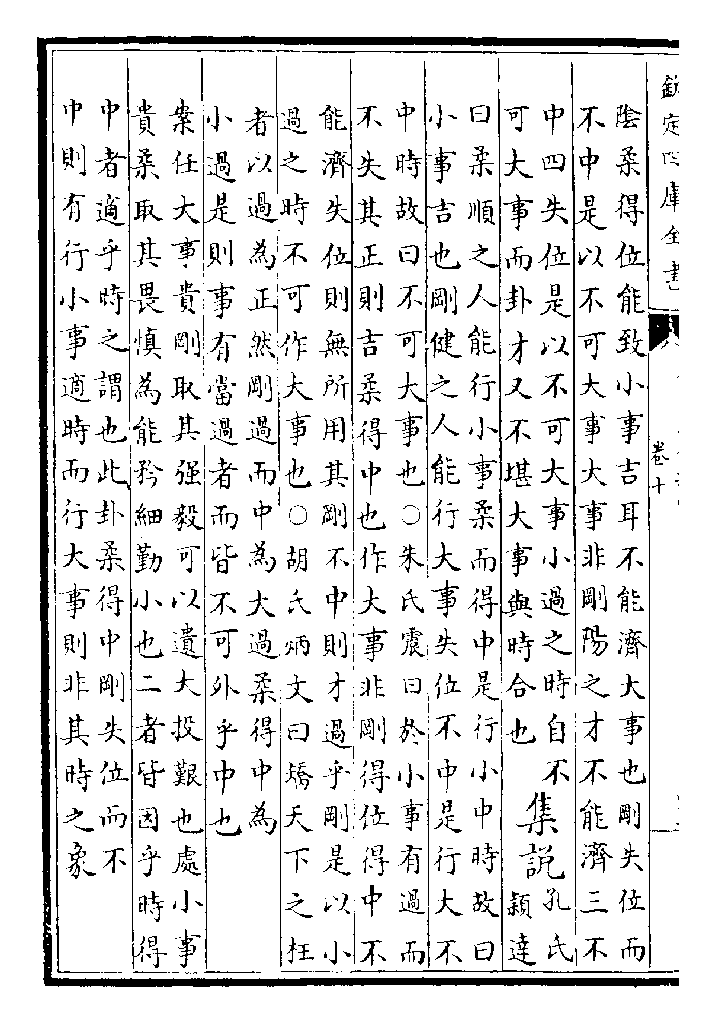 欽定四庫全書
卷十
陰柔得位能致小事吉耳不能濟大事也剛失位而
不中是以不可大事大事非剛陽之才不能濟三不
中四失位是以不可大事小過之時自不
可大事而卦才又不堪大事與時合也
集說
孔氏
穎達
曰柔順之人能行小事柔而得中是行小中時故曰
小事吉也剛健之人能行大事失位不中是行大不
中時故曰不可大事也○朱氏震曰於小事有過而
不失其正則吉柔得中也作大事非剛得位得中不
能濟失位則無所用其剛不中則才過乎剛是以小
過之時不可作大事也○胡氏炳文曰矯天下之枉
者以過為正然剛過而中為大過柔得中為
小過是則事有當過者而皆不可外乎中也
案任大事貴剛取其强毅可以遺大投艱也處小事
貴柔取其畏慎為能矜細勤小也二者皆因乎時得
中者適乎時之謂也此卦柔得中剛失位而不
中則有行小事適時而行大事則非其時之象